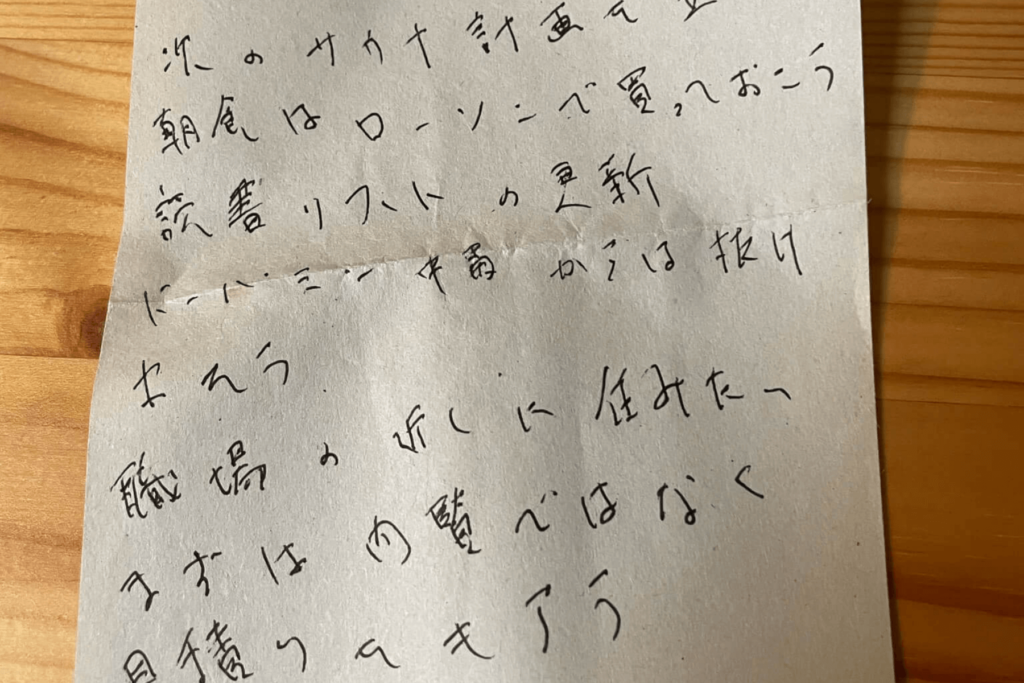 次のサウナ計画を
朝食はローソンで買っておこう
読書リストの更新
ドーパミン中毒からは抜け
出そう
職場の近くに住みたい
まずは内覧ではなく
見積りをもらう